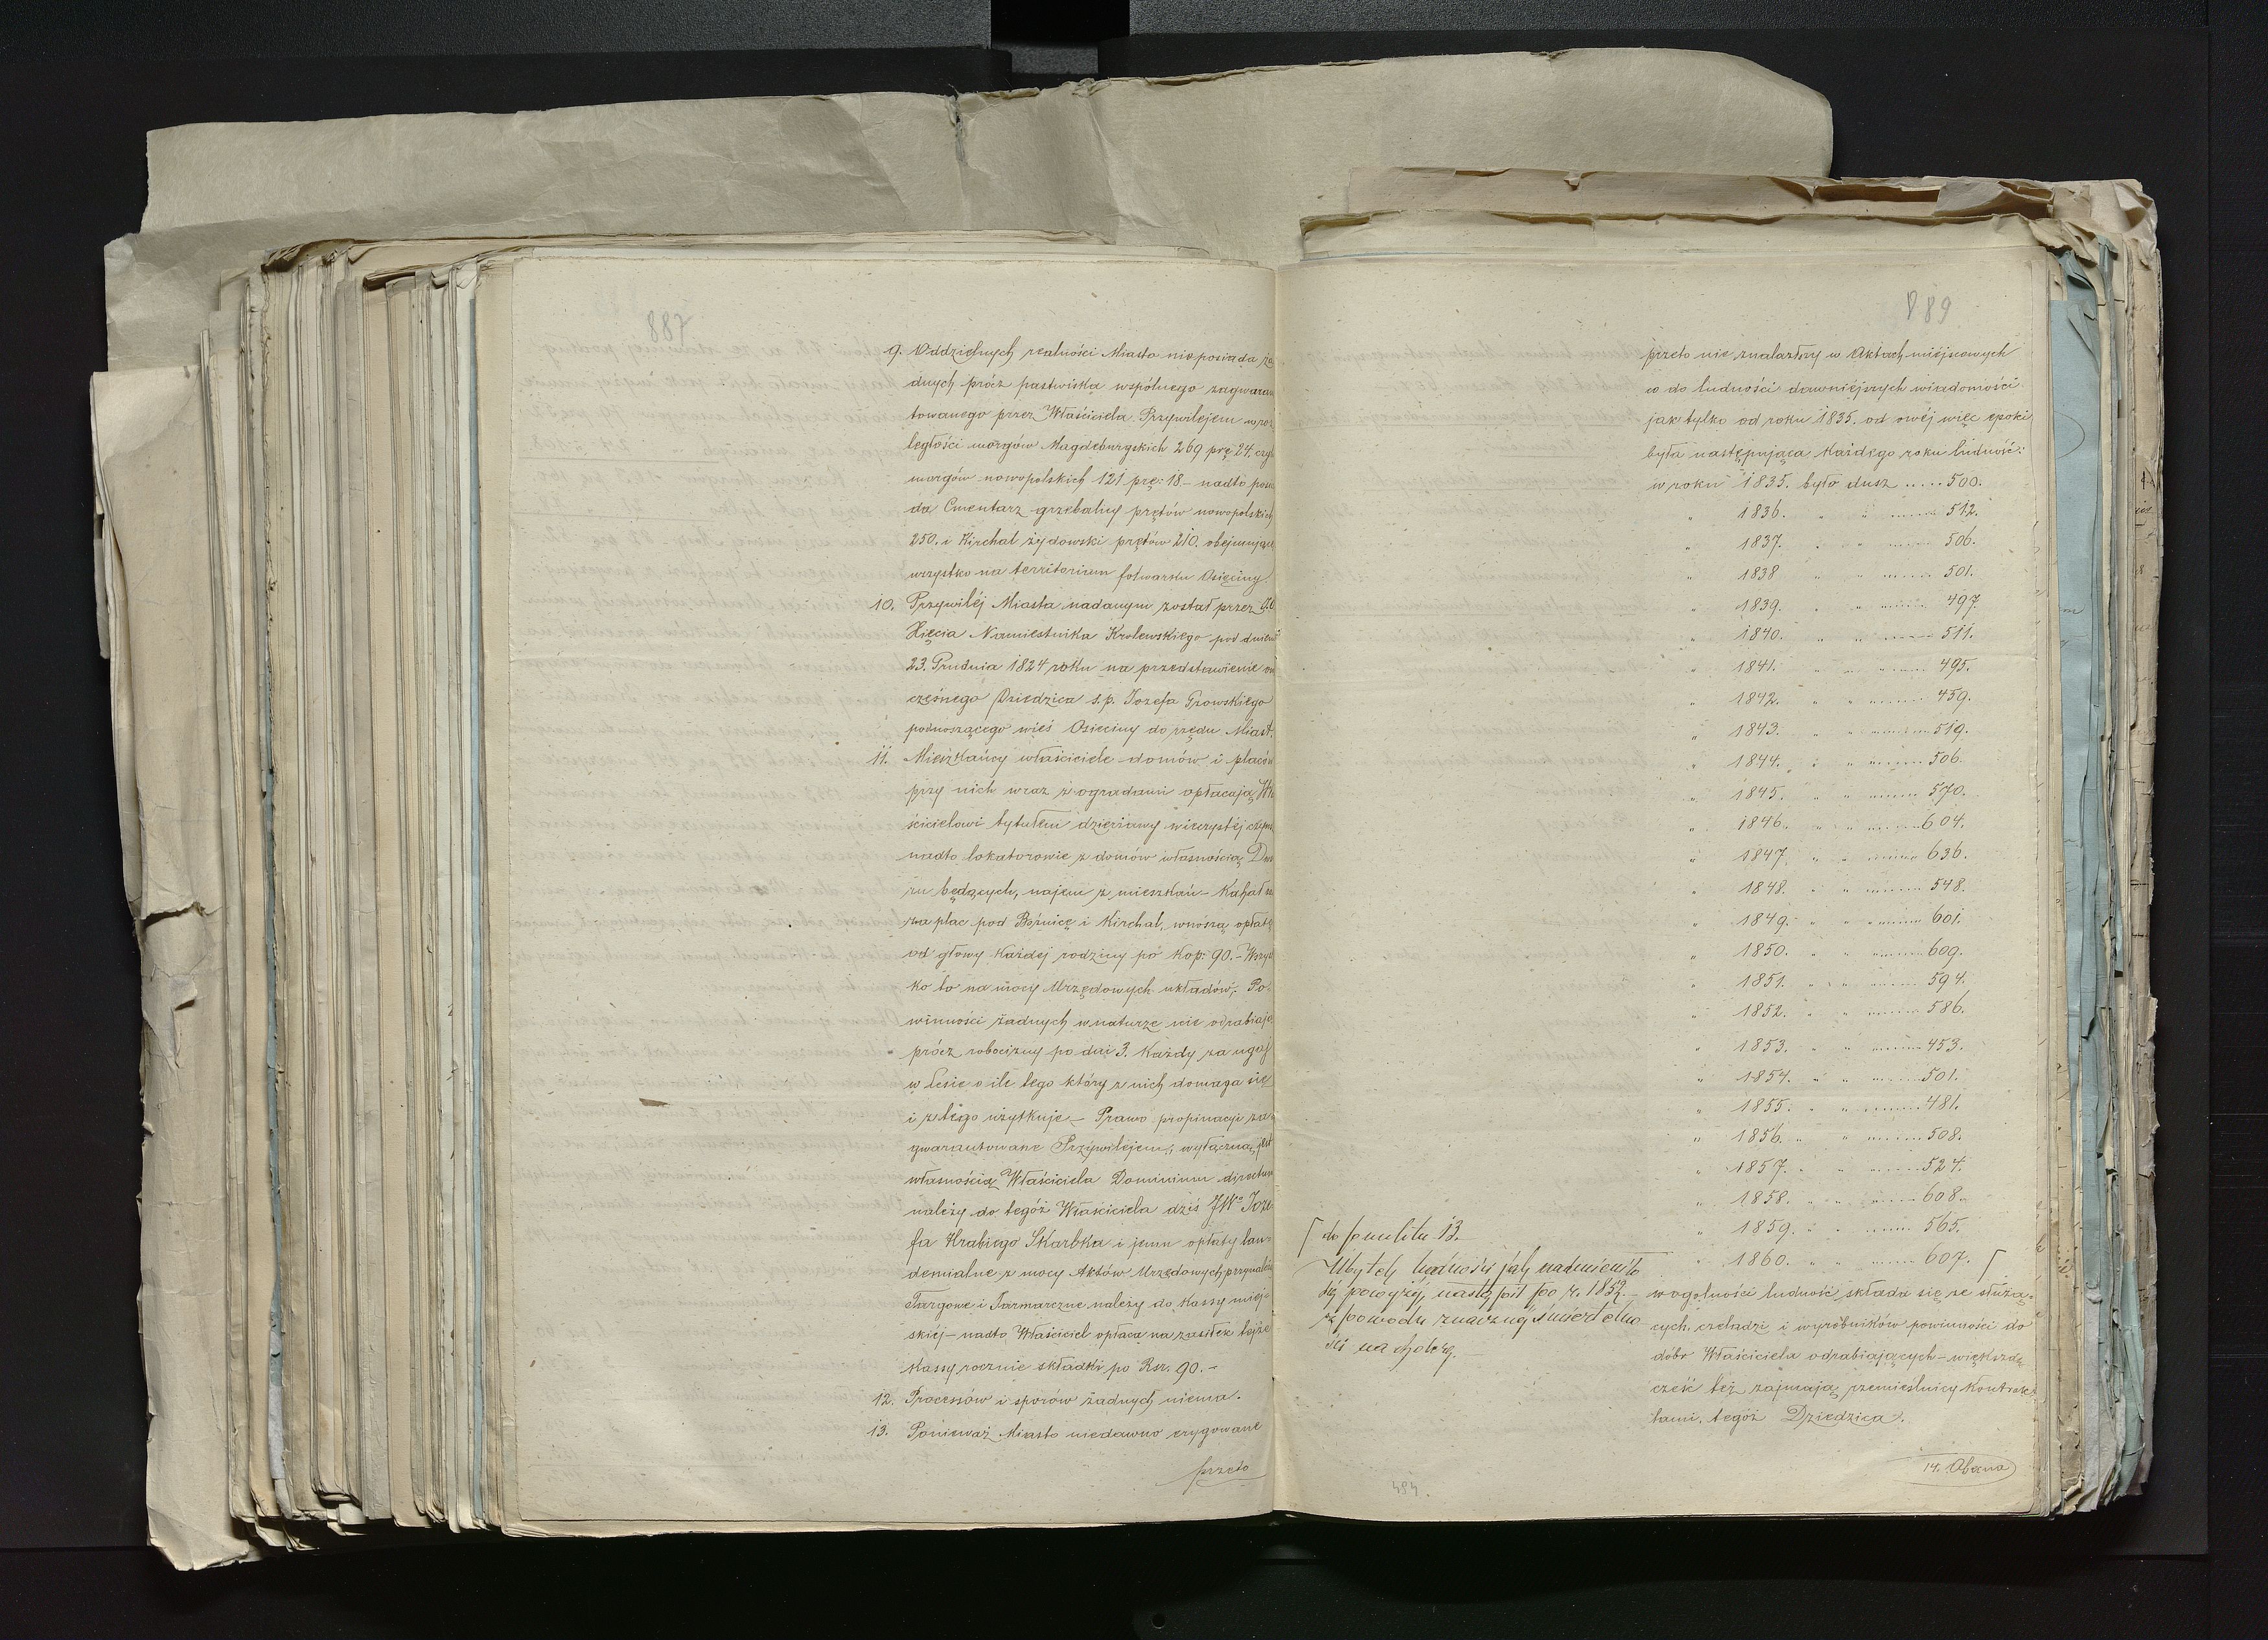 887
9. Oddzielnych realności Miasto nieposiada ża
dnych prócz pastwiska wspólnego zagwaran
towanego przez Właściciela Przywilejem w roz
ległości morgów Magdeburgskich 269 prę 24. czyl
morgów nowopolskich 121 prę: 18 – nadto posia
da Cmentarz grzebalny prętów nowopolskich
250. i Kirchal żydowski prętów 210. obejmujące
wszystko na territorium folwarku Osięciny.
10. Przywiléj Miasta nadanym został przez
Xięcia Namiestnika Krolewskiego pod dniem
23. Grudnia 1824 roku na przedstawienie ów
czesnego Dziedzica ś.p. Jozefa
podnoszącego wieś Osieciny do rzędu Miast.
11. Mieszkańcy właściciele domów i placów
przy nich wraz z ogradami opłacają Wła
ścicielowi tytułem dzierżawy wieczystéj czynsz
nadto lokatorowie z domów własnością Dwo
ru będących, najem z mieszkań – Kahał zaś
za plac pod Bóżnicę i Kirchal, wnoszą opłatę
od głowy Każdej rodziny po Kop: 90. – Wszyst
ko to na mocy Urzędowych układów; Po
winności żadnych w naturze nie odrabiają
prócz robocizny po dni 3. Każdy za ugaj
w lesie o ile tego który z nich domaga się
i z tégo użytkuje – Prawo propinacyi za
gwarantowane Przywilejem, wyłączną jest
własnością Właściciela Dominium directum
należy do tegóż Właściciela dziś JWo Joze
fa Hrabiego Skarbka i jemu opłaty lau=
demialne z mocy Aktów Urzędowych przynależą
Targowe i Jarmarczne należy do Kassy miej=
skiéj – nadto Właściciel opłaca na zasiłek tejże
Kassy rocznie składki po Rsr. 90. –
12. Processów i sporów żadnych niema.
13. Ponieważ Miasto niedawno erygowane
przeto
889
przeto nie znalazłszy w Aktach miéjscowych
co do ludności dawniéjszych wiadomości
jak tylko od roku 1835. od owéj więc epoki
była następująca Każdego roku ludność:
w roku 1835. było dusz ..... 500.
" 1836. " " ..... 512.
" 1837. " " ..... 506.
" 1838 " " ..... 501.
" 1839. " " ..... 497.
" 1840. " " ..... 511.
" 1841. " " ..... 495.
" 1842. " " ..... 459.
" 1843. " " ..... 519.
" 1844. " " ..... 506.
" 1845. " " ..... 570.
" 1846. " " ..... 604.
" 1847. " " ..... 636.
" 1848. " " ..... 548.
" 1849. " " ..... 601.
" 1850. " " ..... 609.
" 1851. " " ..... 594.
" 1852. " " ..... 586.
" 1853. " " ..... 453.
" 1854. " " ..... 501.
" 1855. " " ..... 481.
" 1856. " " ..... 508.
" 1857. " " ..... 524.
" 1858. " " ..... 608.
" 1859. " " ..... 565.
" 1860. " " ..... 607. ⌈
w ogolności ludność składa się ze służą=
cych, czeladzi i wyrobników powinności do
dóbr Właściciela odrabiających – większą
cześć téż zajmają rzemieślnicy Kontrak=
tami, tegóż Dziedzica.
14. Obecna
⌈ do punktu 13.
Ubytek ludności jak nadmieniło
się powyżéj, nastąpił po r. 1852. –
z powodu znacznéj śmiertelno
ści na cholerę. –
484.